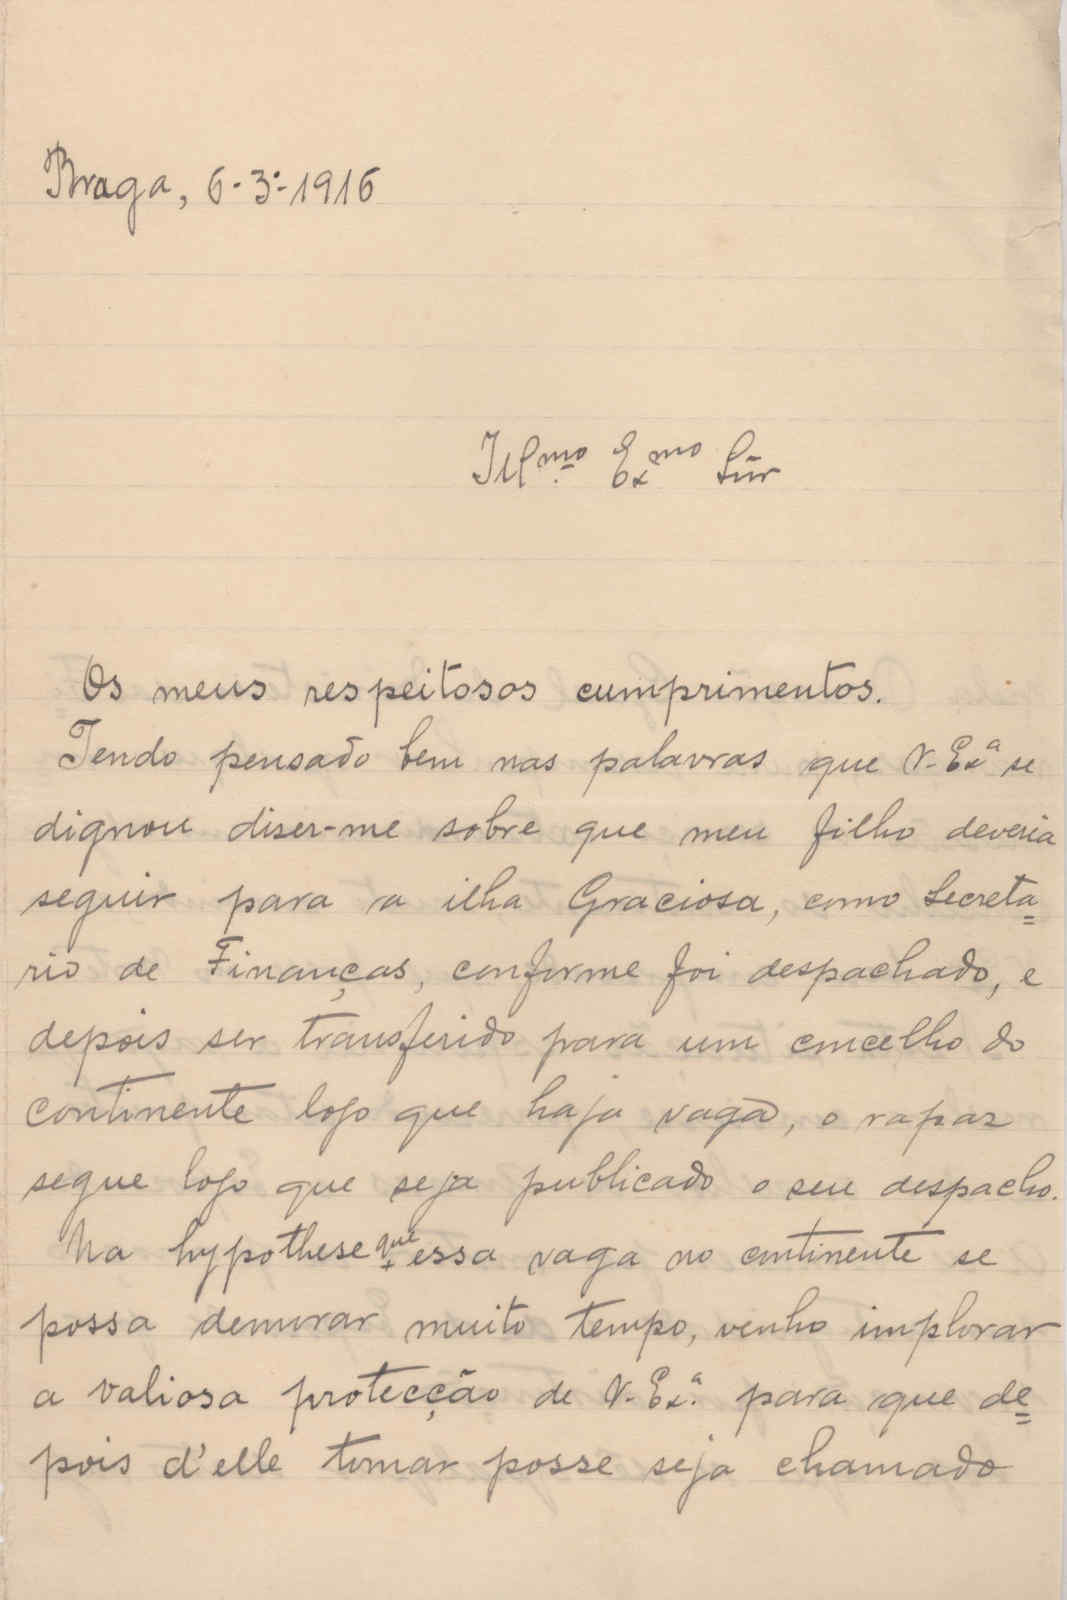 Braga, 6-3º-1916
Ill.mo Ex.mo Snr
Os meus respeitosos cumprimentos.
Tendo pensado bem nas palavras que V. Ex.ª se
dignou diser-me sobre que meu filho deveria
seguir para a ilha Graciosa, como Secreta=
rio de Finanças, conforme foi despachado, e
depois ser transferido para um concelho do
continente logo que haja vaga, o rapaz
segue logo que seja publicado o seu despacho.
Na hypothese que essa vaga no continente se
possa demorar muito tempo, venho implorar
a valiosa protecção de V. Ex.ª para que de=
pois d'elle tomar posse seja chamado